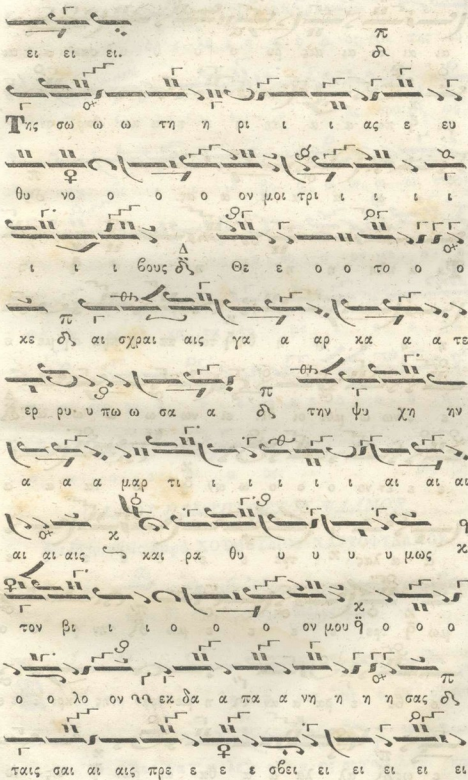 ει ει ει.
Της σω ω ω τη η ρι ι ι ι ας ε ευ
θυ νο ο ο ο ο ον μοι τρι ι ι ι ι
ι ι ι βους Θε ε ο ο το ο ο
κε αι σχραι αις γα α αρ κα α α τε
ερ ρυ υ πω ω σα α την ψυ χη ην
α α α μαρ τι ι ι ι ι ι αι αι αι
αι αι αις και ρα θυ υ υ υ υ υ μως
τον βι ι ι ο ο ο ο ον μου ο ο ο
ο ο λο ον εκ δα α πα α νη η η η σας
ταις σαι αι αις πρε ε ε ε σβει ει ει ει ει ει